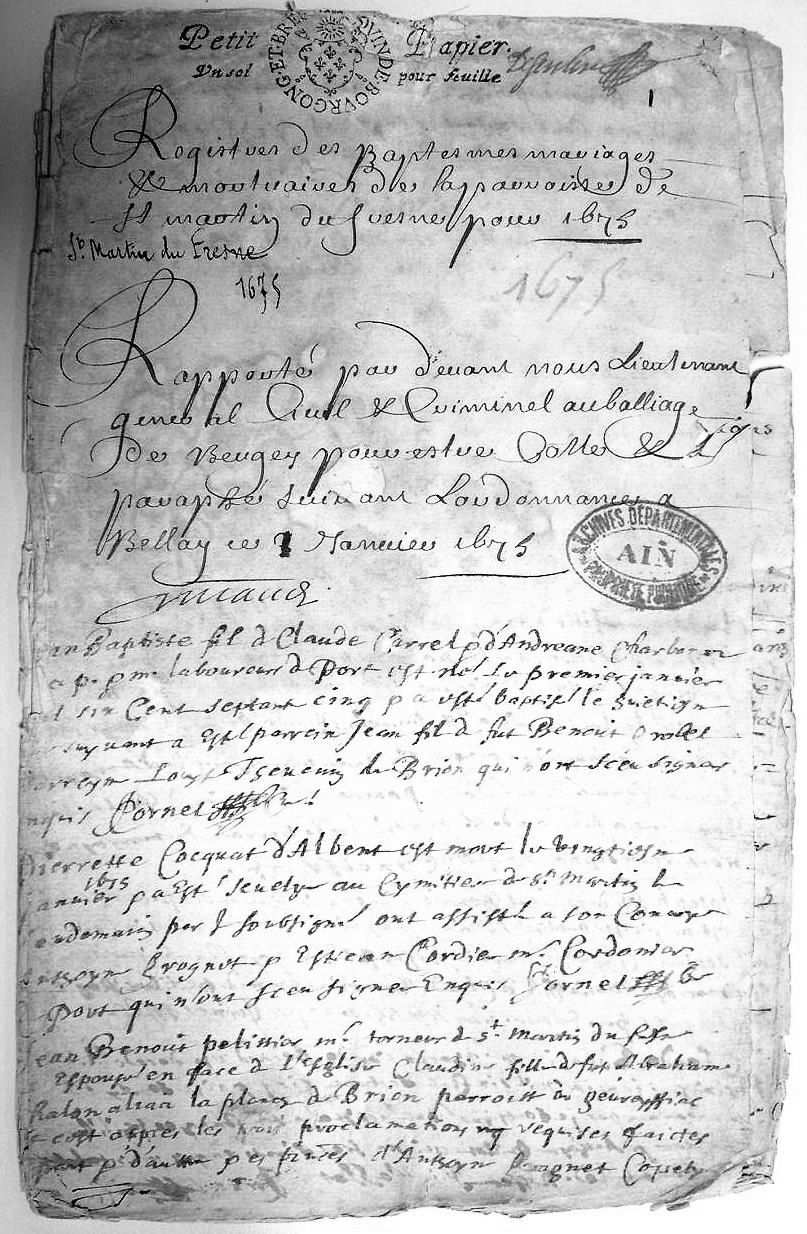 Petit Papier.
Un sol pour feuille
BOURGONG·ET·BRE
1
Registres des Baptesmes mariages
& mortuaires de la parroisse de
St martin du fresne pour 1675
St. Martin du Fresne
1675
1675
Rapporté par devant nous Lieutenant
general Civil & Criminel au balliage
de Beugey pour estre Cotte &
paraphé suivant Lordonnance a
Bellay ce Janvier 1675
ARCHIVES DÉPARTEMENTALES
AIN
PROPRIÉTÉ PUBLIQUE
Baptiste fil d Claude Carrel p d'Andreane
laboureur d Port est né le premier janvier
six Cent septant cinq p a esté baptisé le
suyvant a esté parrein Jean fil d fut Benoit
de Brion qui n'ont sceu signer
enquis Cornel
Pierrette Cocquat d'Albent est mort le vingtiesme
janvier 1675 p a esté sevely au Cymitier de St martin le
lendemain per J soubsigné ont assisté a son
Brognet p Estiean Cordier mr Cordonier
Port qui n'ont sceu signer Enquis Cornel
Jean Benoit pelissier mr torneur d St martin du
Espousé en face d L'esglise Claudine fille d fut Abraham
alias la place d Brion parroisse
appres les trois proclamations requises faictes
part p d'autre d'Antoyne